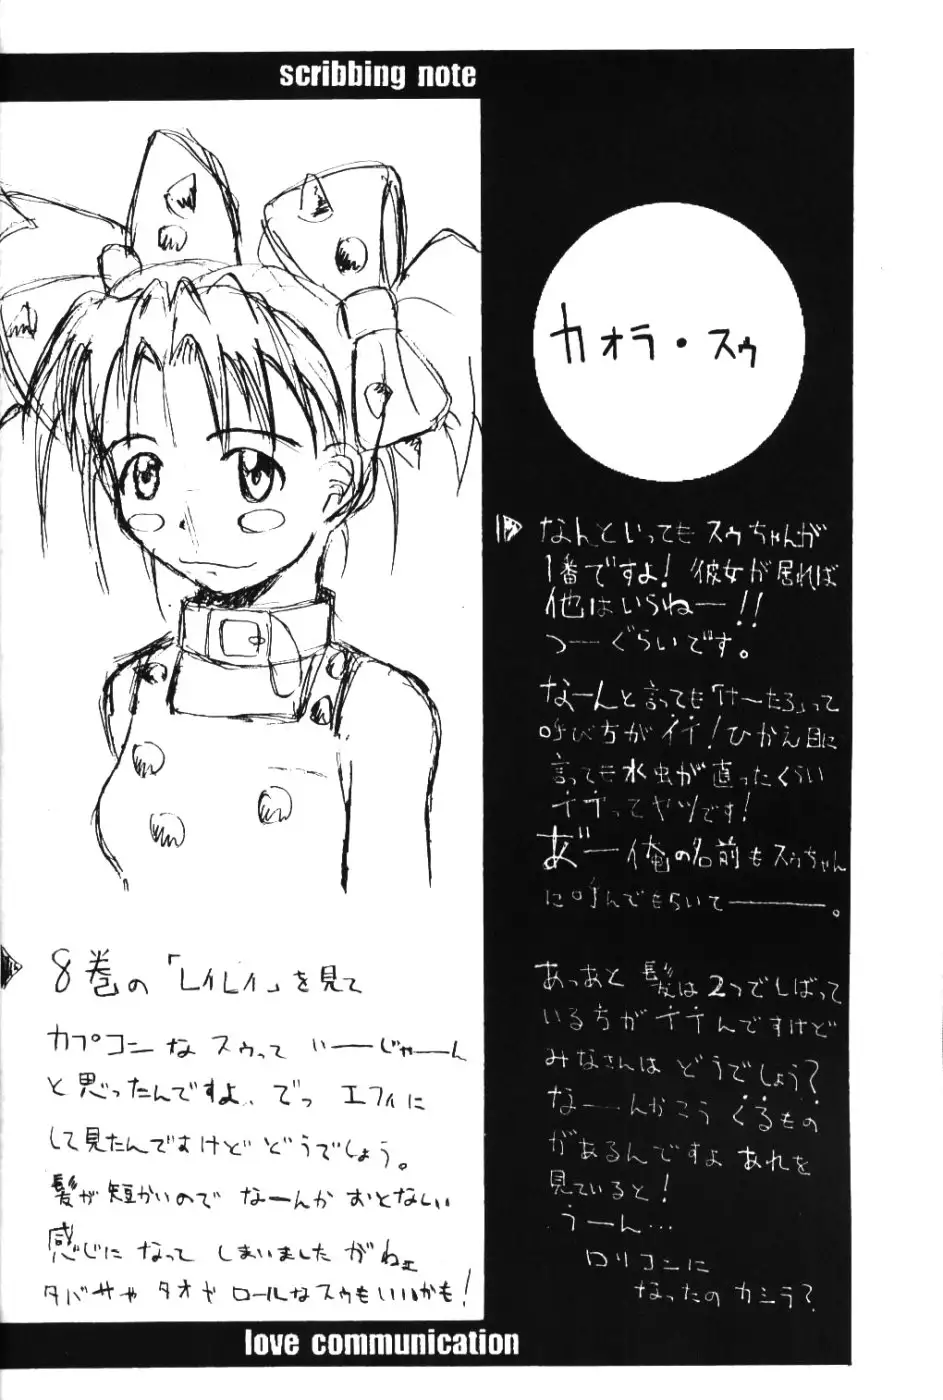 scribbing note
カオラ・スゥ
なんといってもスゥちゃんが
1番ですよ!彼女が居れば
他はいらねー!!
つーぐらいです。
なーんと言っても「けーたろ」って
呼び方がイイ!ひかえ目に
言っても水虫が直ったくらい
イイってヤツです!
あ゛ー俺の名前もスゥちゃん
に呼んでもらいてーーー。
あっあと髪は2つでしばって
いる方がイイんですけど
みなさんはどうでしょう?
なーんかこうくるもの
があるんですよあれを
見ていると!
うーん…
ロリコンに
なったのカシラ?
8巻の「レイレイ」を見て
カプコンなスゥっていーじゃーん
と思ったんですよ、でっエフィに
して見たんですけどどうでしょう。
髪が短かいのでなーんかおとなしい
感じになってしまいましたがねェ
タバサやタオやロールなスゥもいいかも!
love communication